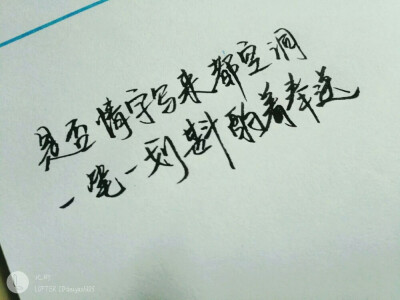 是否情字写来都空洞
一笔一划斟酌着奉送